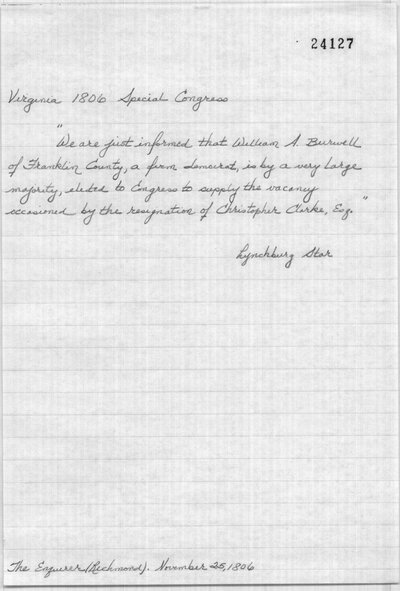 24127
Virginia 1806 Special Congress
"We are just informed that William A. Burwell
of Franklin County, a firm democrat, is by a very large
majority, elected to Congress to supply the vacancy
occasioned by the resignation of Christopher Clarke, Esq."
Lynchburg Star
The Enquirer (Richmond). November 25, 1806